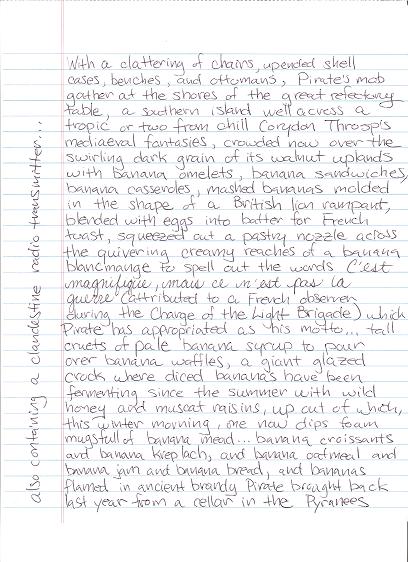 With a clattering of chairs, upended shell
cases, benches, and ottomans, Pirate's mob
gather at the shores of the great refectory
table, a southern island well across a
tropic or two from chill Corydon Throsp's
mediaeval fantasies, crowded now over the
swirling dark grain of its walnut uplands
with banana omelets, banana sandwiches,
banana casseroles, mashed bananas molded
in the shape of a British lion rampant,
blended with eggs into batter for French
toast, squeezed out a pastry nozzle across
the quivering creamy reaches of a banana
blancmange to spell out the words C'est
magnifique, mais ce n'est pas la
guerre (attributed to a French observer
during the Charge of the Light Brigade) which
Pirate has appropriated as his motto... tall
cruets of pale banana syrup to pour
over banana waffles, a giant glazed
crock where diced bananas have been
fermenting since the summer with wild
honey and muscat raisins, up out of which,
this winter morning, one now dips foam
mugsfull of banana mead... banana croissants
and banana kreplach, and banana oatmeal and
banana jam and banana bread, and bananas
flamed in ancient brandy Pirate brought back
last year from a cellar in the Pyranees
also containing a clandestine radio transmitter...